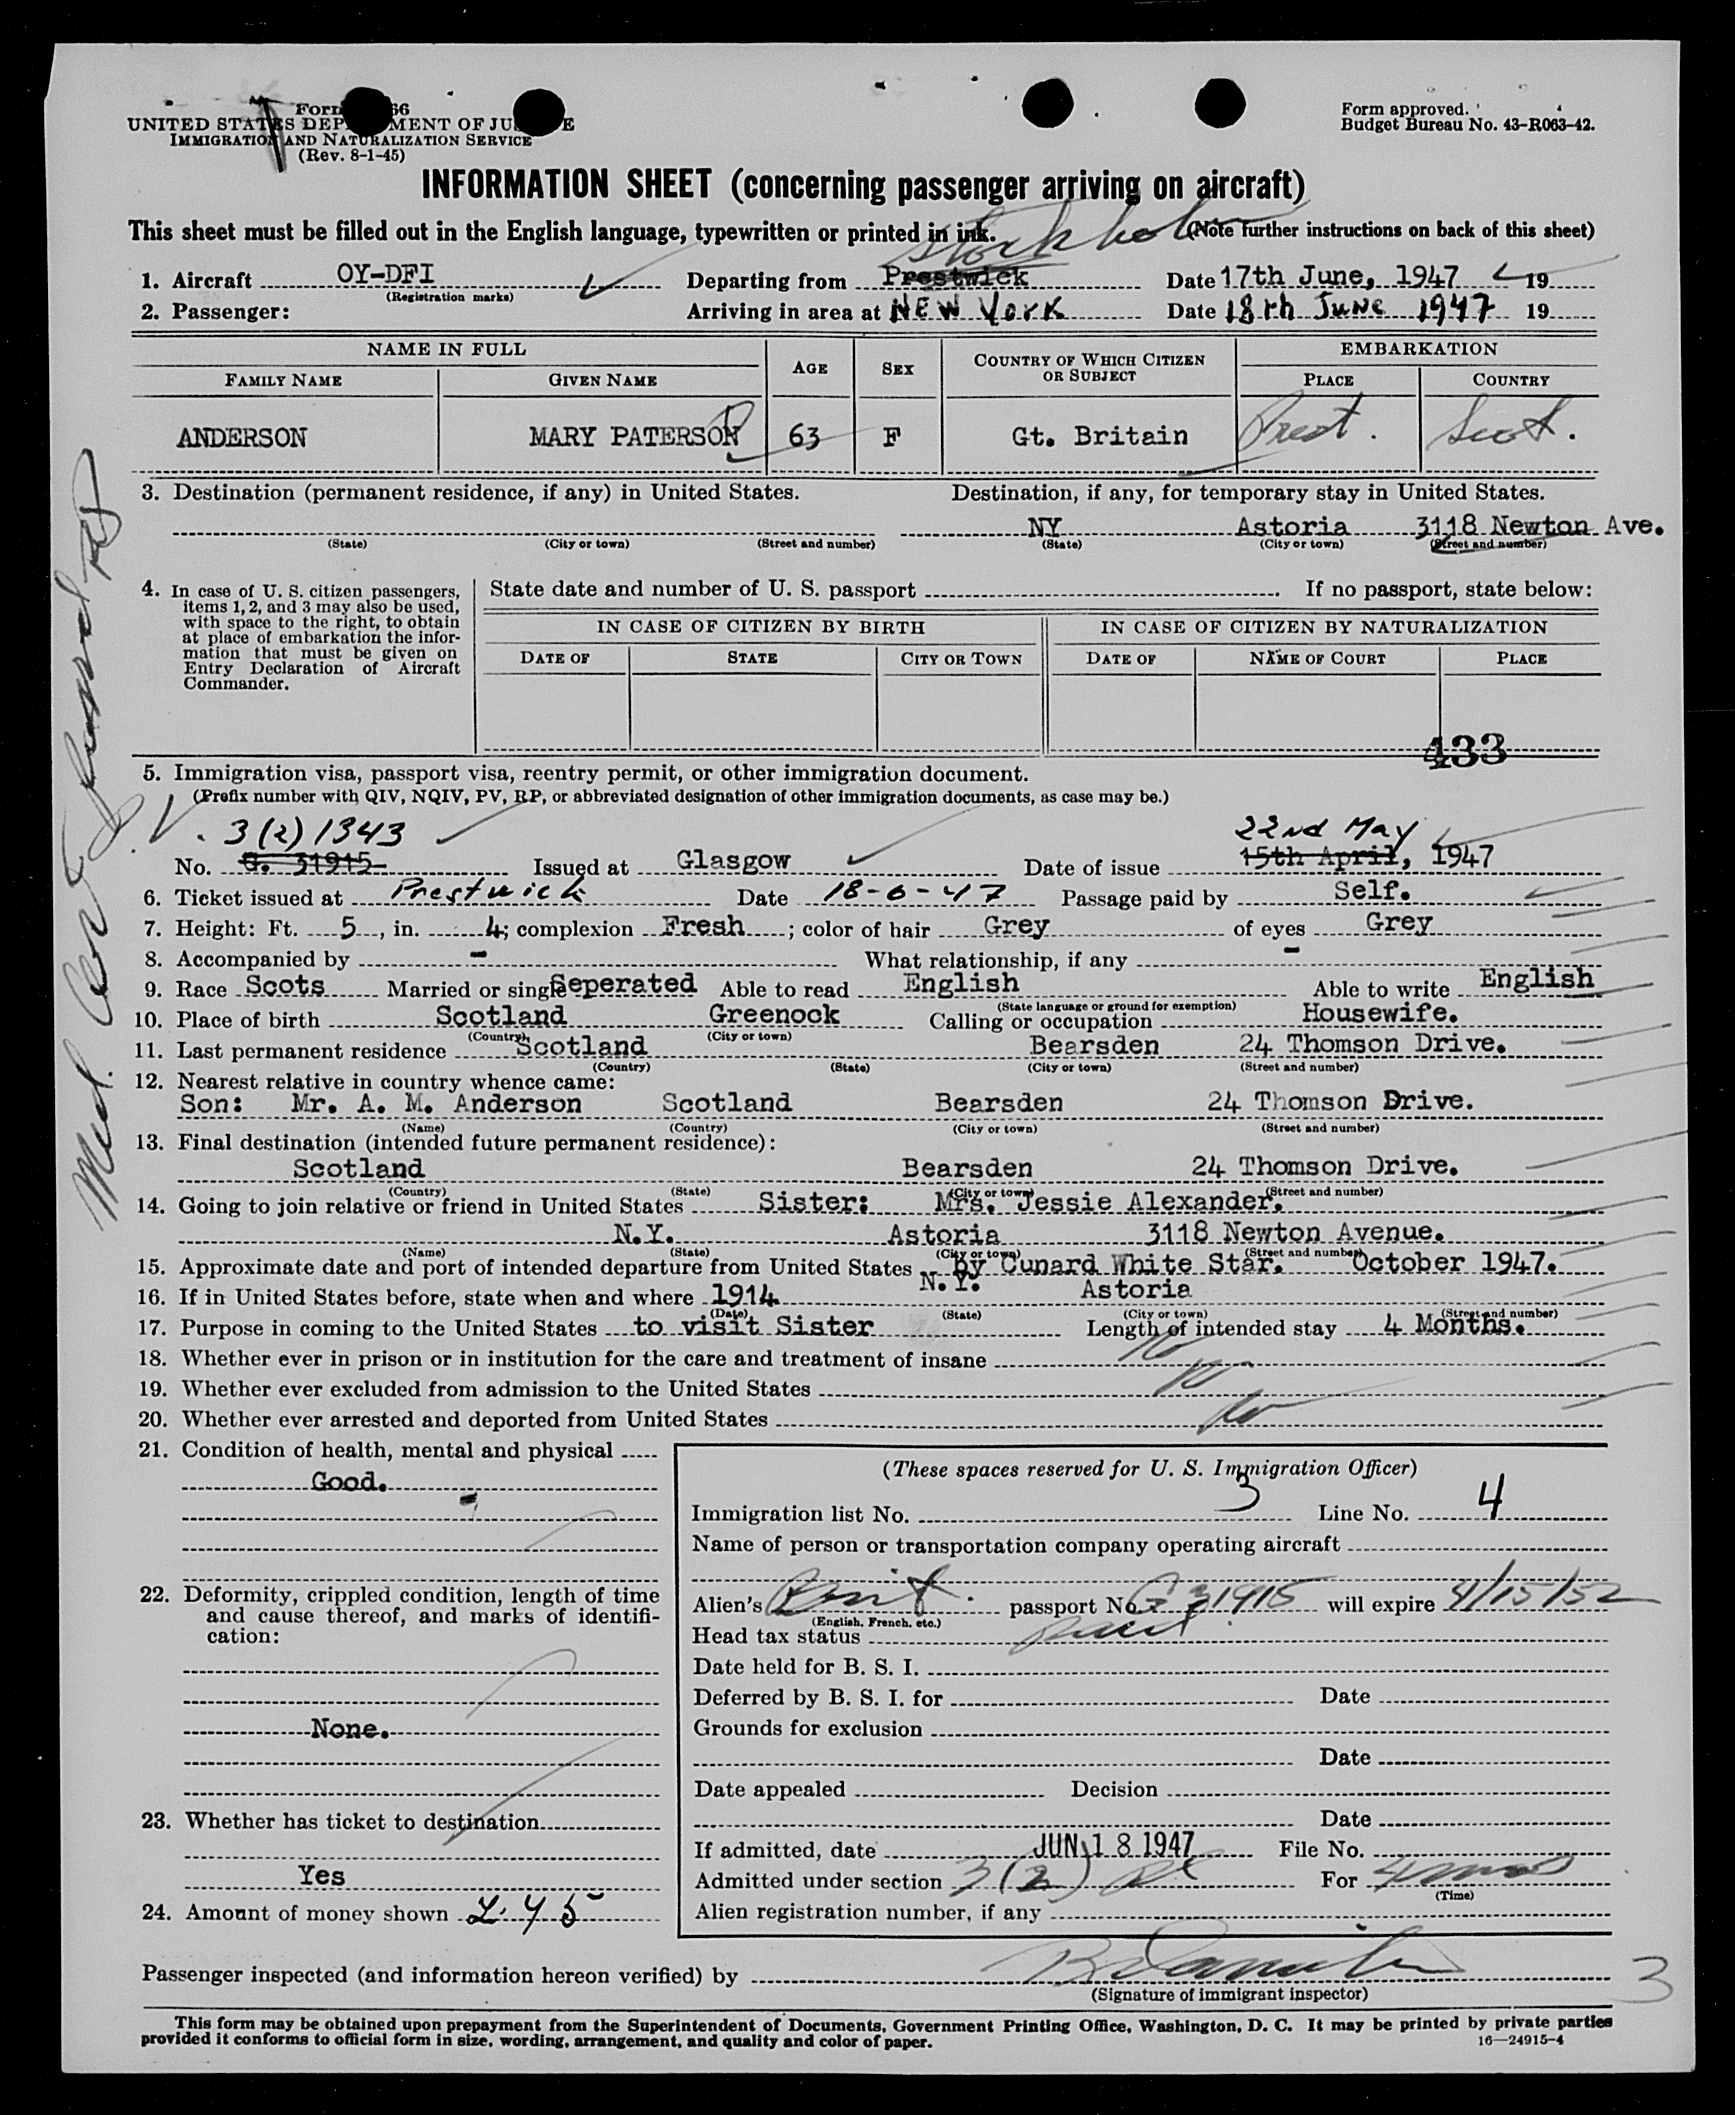 Form 66
UNITED STATES DEP MENT OF JU E
IMMIGRATION AND NATURALIZATION SERVICE
(Rev. 8-1-45)
Form approved.
Budget Bureau No. 43-R063-42.
INFORMATION SHEET (concerning passenger arriving on aircraft)
This sheet must be filled out in the English language, typewritten or printed in ink. (Note further instructions on back of this sheet)
Stockholm
1. Aircraft OY-DFI Departing from Prestwick Date 17th June, 1947 19
(Registration marks)
2. Passenger: Arriving in area at NEW YORK Date 18th JUNE 1947 19
NAME IN FULL AGE SEX COUNTRY OF WHICH CITIZEN OR SUBJECT EMBARKATION
FAMILY NAME GIVEN NAME PLACE COUNTRY
ANDERSON MARY PATERSON 63 F Gt. Britain Prest. Scot.
3. Destination (permanent residence, if any) in United States. Destination, if any, for temporary stay in United States.
NY Astoria 3118 Newton Ave.
(State) (City or town) (Street and number) (State) (City or town) (Street and number)
4. In case of U. S. citizen passengers, items 1, 2, and 3 may also be used, with space to the right, to obtain at place of embarkation the information that must be given on Entry Declaration of Aircraft Commander.
State date and number of U. S. passport . If no passport, state below:
IN CASE OF CITIZEN BY BIRTH IN CASE OF CITIZEN BY NATURALIZATION
DATE OF STATE CITY OR TOWN DATE OF NAME OF COURT PLACE
433
5. Immigration visa, passport visa, reentry permit, or other immigration document.
(Prefix number with QIV, NQIV, PV, RP, or abbreviated designation of other immigration documents, as case may be.)
V. 3(2) 1343 22nd May
No. C. 31915 Issued at Glasgow Date of issue 15th April, 1947
6. Ticket issued at Prestwick Date 18-6-47 Passage paid by Self.
7. Height: Ft. 5, in. 4; complexion Fresh; color of hair Grey of eyes Grey
8. Accompanied by - What relationship, if any -
9. Race Scots Married or single Seperated Able to read English Able to write English
(State language or ground for exemption)
10. Place of birth Scotland Greenock Calling or occupation Housewife.
(Country) (City or town)
11. Last permanent residence Scotland Bearsden 24 Thomson Drive.
(Country) (State) (City or town) (Street and number)
12. Nearest relative in country whence came:
Son: Mr. A. M. Anderson Scotland Bearsden 24 Thomson Drive.
(Name) (Country) (City or town) (Street and number)
13. Final destination (intended future permanent residence):
Scotland Bearsden 24 Thomson Drive.
(Country) (State) (City or town) (Street and number)
14. Going to join relative or friend in United States Sister: Mrs. Jessie Alexander.
N.Y. Astoria 3118 Newton Avenue.
(Name) (State) (City or town) (Street and number)
15. Approximate date and port of intended departure from United States by Cunard White Star. October 1947.
16. If in United States before, state when and where 1914 N.Y. Astoria
(Date) (State) (City or town) (Street and number)
17. Purpose in coming to the United States to visit Sister Length of intended stay 4 Months.
18. Whether ever in prison or in institution for the care and treatment of insane No
19. Whether ever excluded from admission to the United States No
20. Whether ever arrested and deported from United States No
21. Condition of health, mental and physical
Good.
22. Deformity, crippled condition, length of time and cause thereof, and marks of identification:
None.
23. Whether has ticket to destination
Yes
24. Amount of money shown £.45
(These spaces reserved for U. S. Immigration Officer)
Immigration list No. 3 Line No. 4
Name of person or transportation company operating aircraft
Alien's Brit. passport No. C 31915 will expire 4/15/52
(English, French, etc.)
Head tax status
Date held for B. S. I.
Deferred by B. S. I. for Date
Grounds for exclusion
Date
Date appealed Decision
Date
If admitted, date JUN 18 1947 File No.
Admitted under section 3(2) For 4 mos
(Time)
Alien registration number, if any
Passenger inspected (and information hereon verified) by
(Signature of immigrant inspector)
3
This form may be obtained upon prepayment from the Superintendent of Documents, Government Printing Office, Washington, D. C. It may be printed by private parties
provided it conforms to official form in size, wording, arrangement, and quality and color of paper. 16—24915-4
Med. Cert